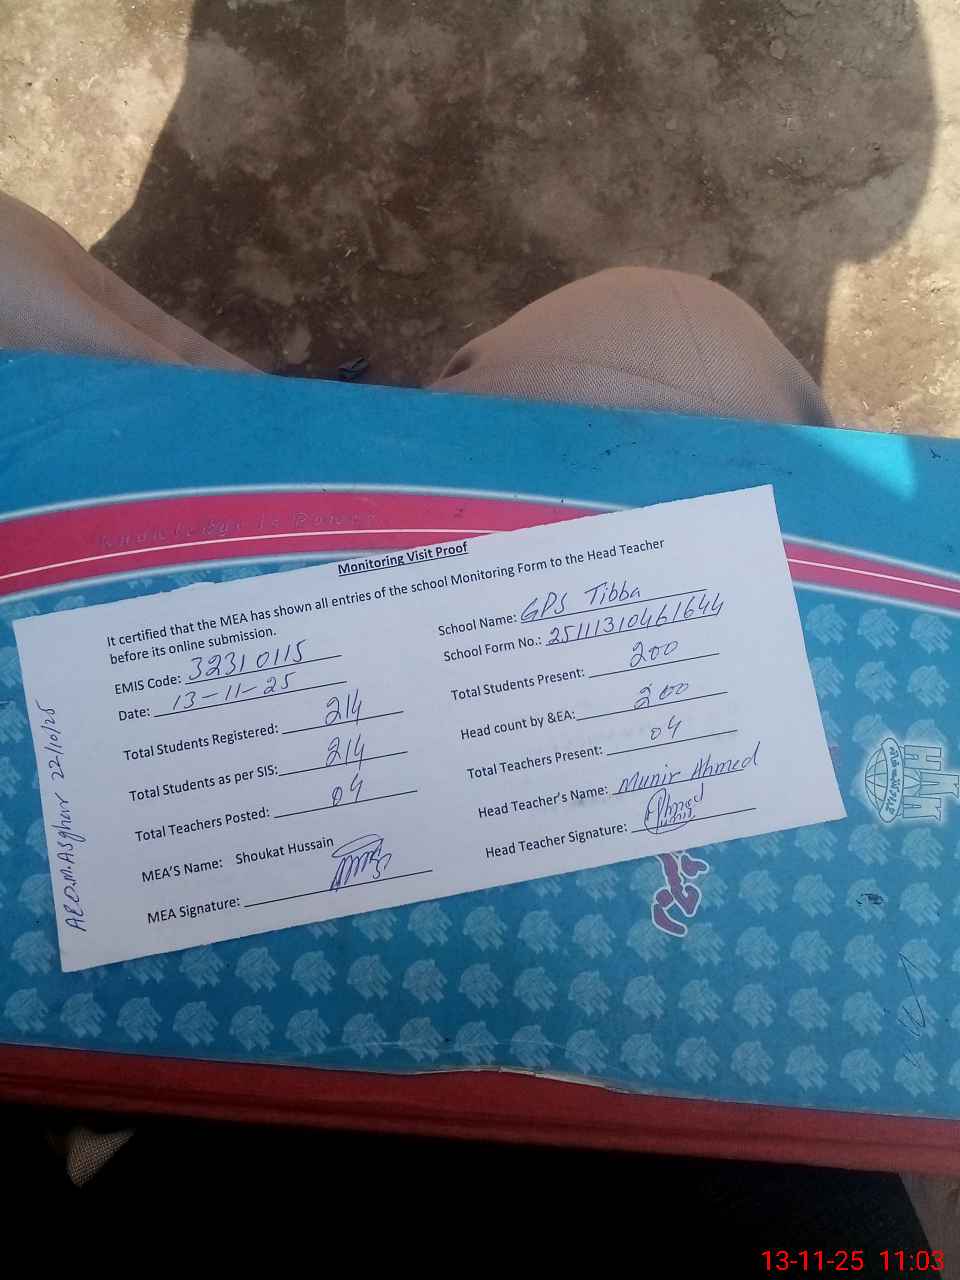 Knowledge is Power
Monitoring Visit Proof
It certified that the MEA has shown all entries of the school Monitoring Form to the Head Teacher
before its online submission.
EMIS Code: 32310115
School Name: GPS Tibba
Date: 13-11-25
School Form No.: 25111310461644
Total Students Registered: 214
Total Students Present: 200
Total Students as per SIS: 214
Head count by &EA: 200
Total Teachers Posted: 04
Total Teachers Present: 04
MEA'S Name: Shoukat Hussain
Head Teacher's Name: Munir Ahmed
MEA Signature:
Head Teacher Signature: Ahmed
AEO.M.Asghar 22/10/25
13-11-25 11:03